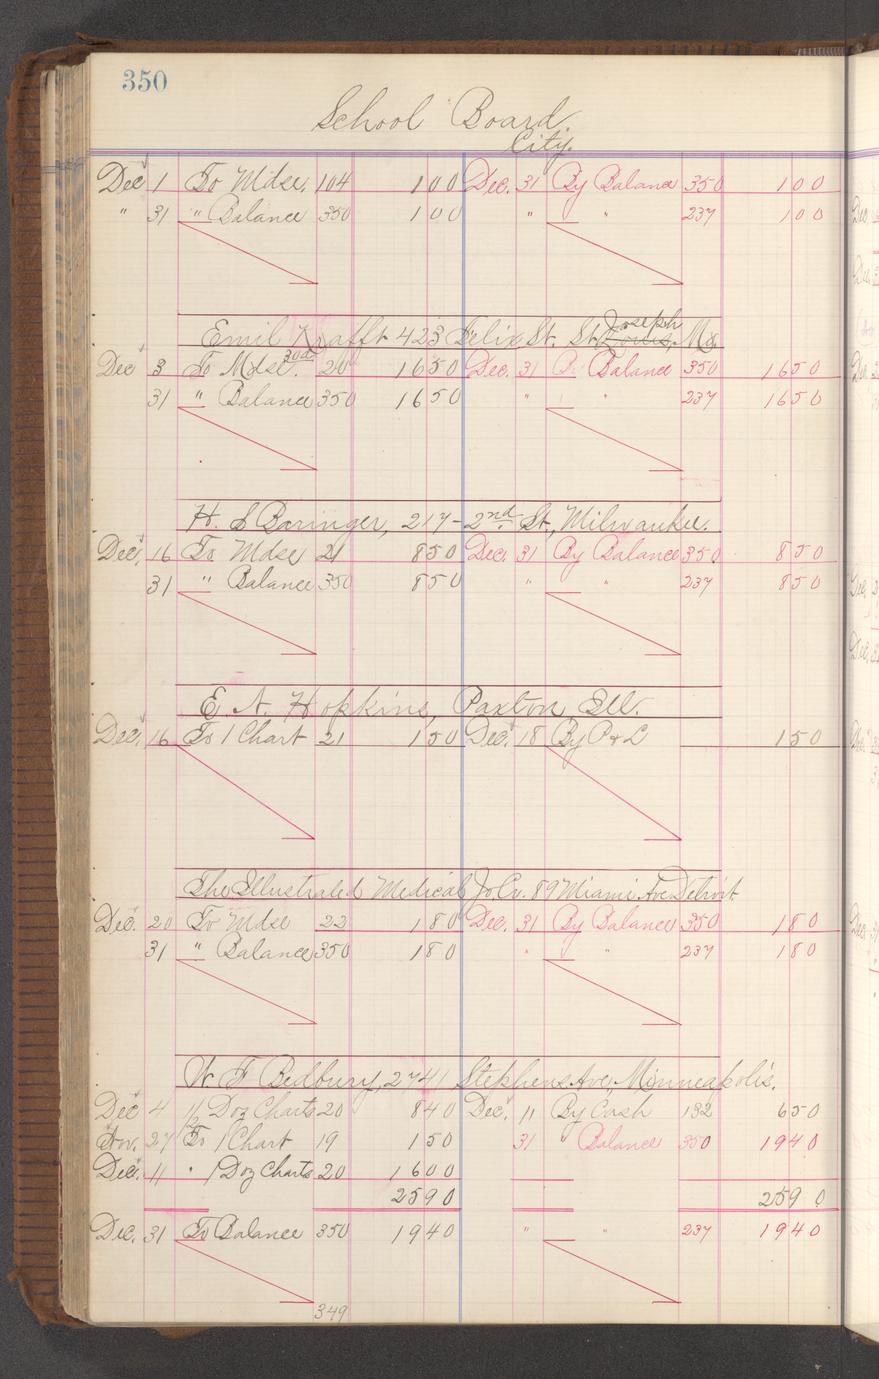 350
School Board
City.
Dec 1 To Mdse. 104 1 00 Dec. 31 By Balance 350 1 00
" 31 " Balance 350 1 00 " " 237 1 00
Emil Krafft 423 Felix St. St. Joseph Louis, Mo.
Dec 3 To Mdse. 20 16 50 Dec. 31 By Balance 350 16 50
31 " Balance 350 16 50 " " 237 16 50
H. S Baringer, 217 - 2nd St., Milwaukee.
Dec. 16 To Mdse 21 8 50 Dec. 31 By Balance 350 8 50
31 " Balance 350 8 50 " " 237 8 50
E. A. Hopkins, Paxton, Ill.
Dec. 16 To 1 Chart 21 1 50 Dec. 18 By P & L 1 50
The Illustrated Medical Jo Co. 89 Miami Ave Detroit
Dec. 20 To Mdse 22 1 80 Dec. 31 By Balance 350 1 80
31 " Balance 350 1 80 " " 237 1 80
W F Bedbury, 2741 Stephens Ave., Minneapolis.
Dec 4 1/2 Doz Charts 20 8 40 Dec. 11 By Cash 132 6 50
Nov. 27 To 1 Chart 19 1 50 31 " Balance 350 19 40
Dec. 11 " 1 Doz Charts 20 16 00
25 90 25 90
Dec. 31 To Balance 350 19 40 " " 237 19 40
349